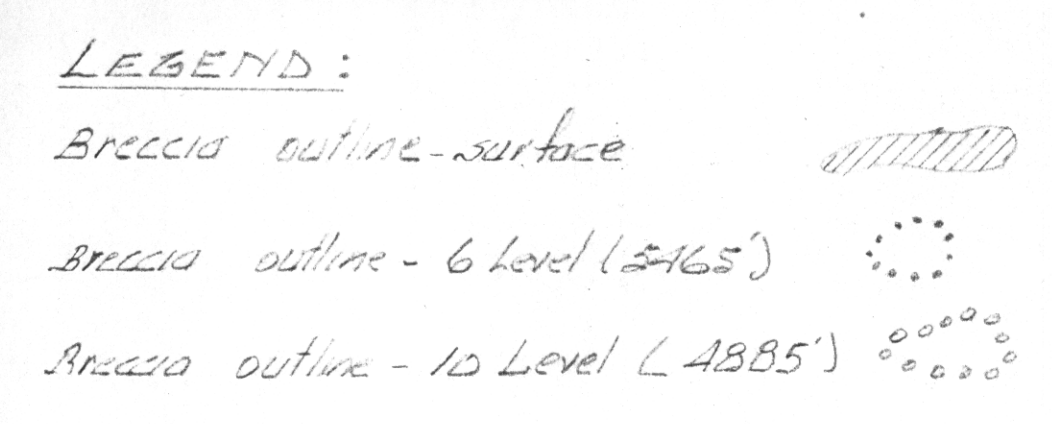 LEGEND:
Breccia outline - surface
Breccia outline - 6 Level (5465')
Breccia outline - 10 Level (4885')